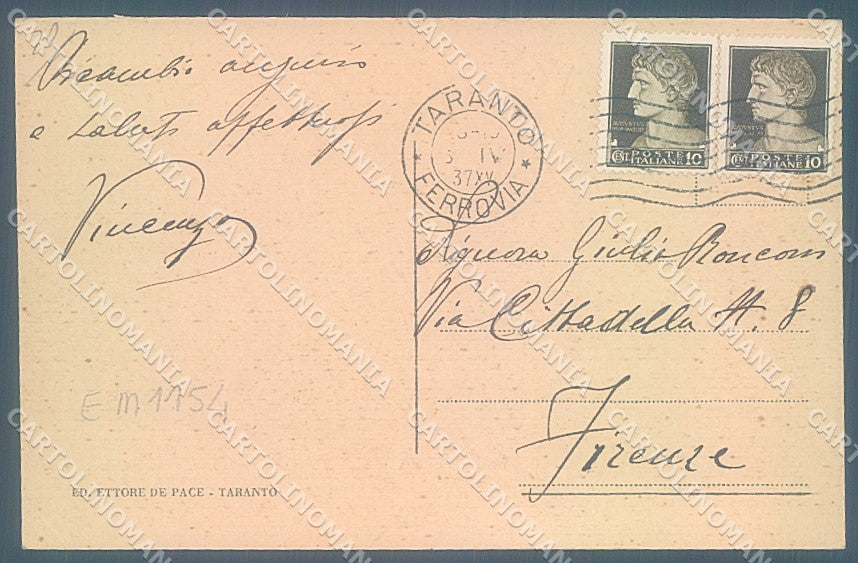 Ricambio auguri
e saluti affettuosi
Vincenzo
TARANTO
IV
37 XV
FERROVIA
POSTE ITALIANE
CENT 10
POSTE ITALIANE
CENT 10
Signora Giulio Ronconi
Via Cittadella N. 8
Firenze
E M 1154
ED. ETTORE DE PACE - TARANTO
CARTOLINOMANIA